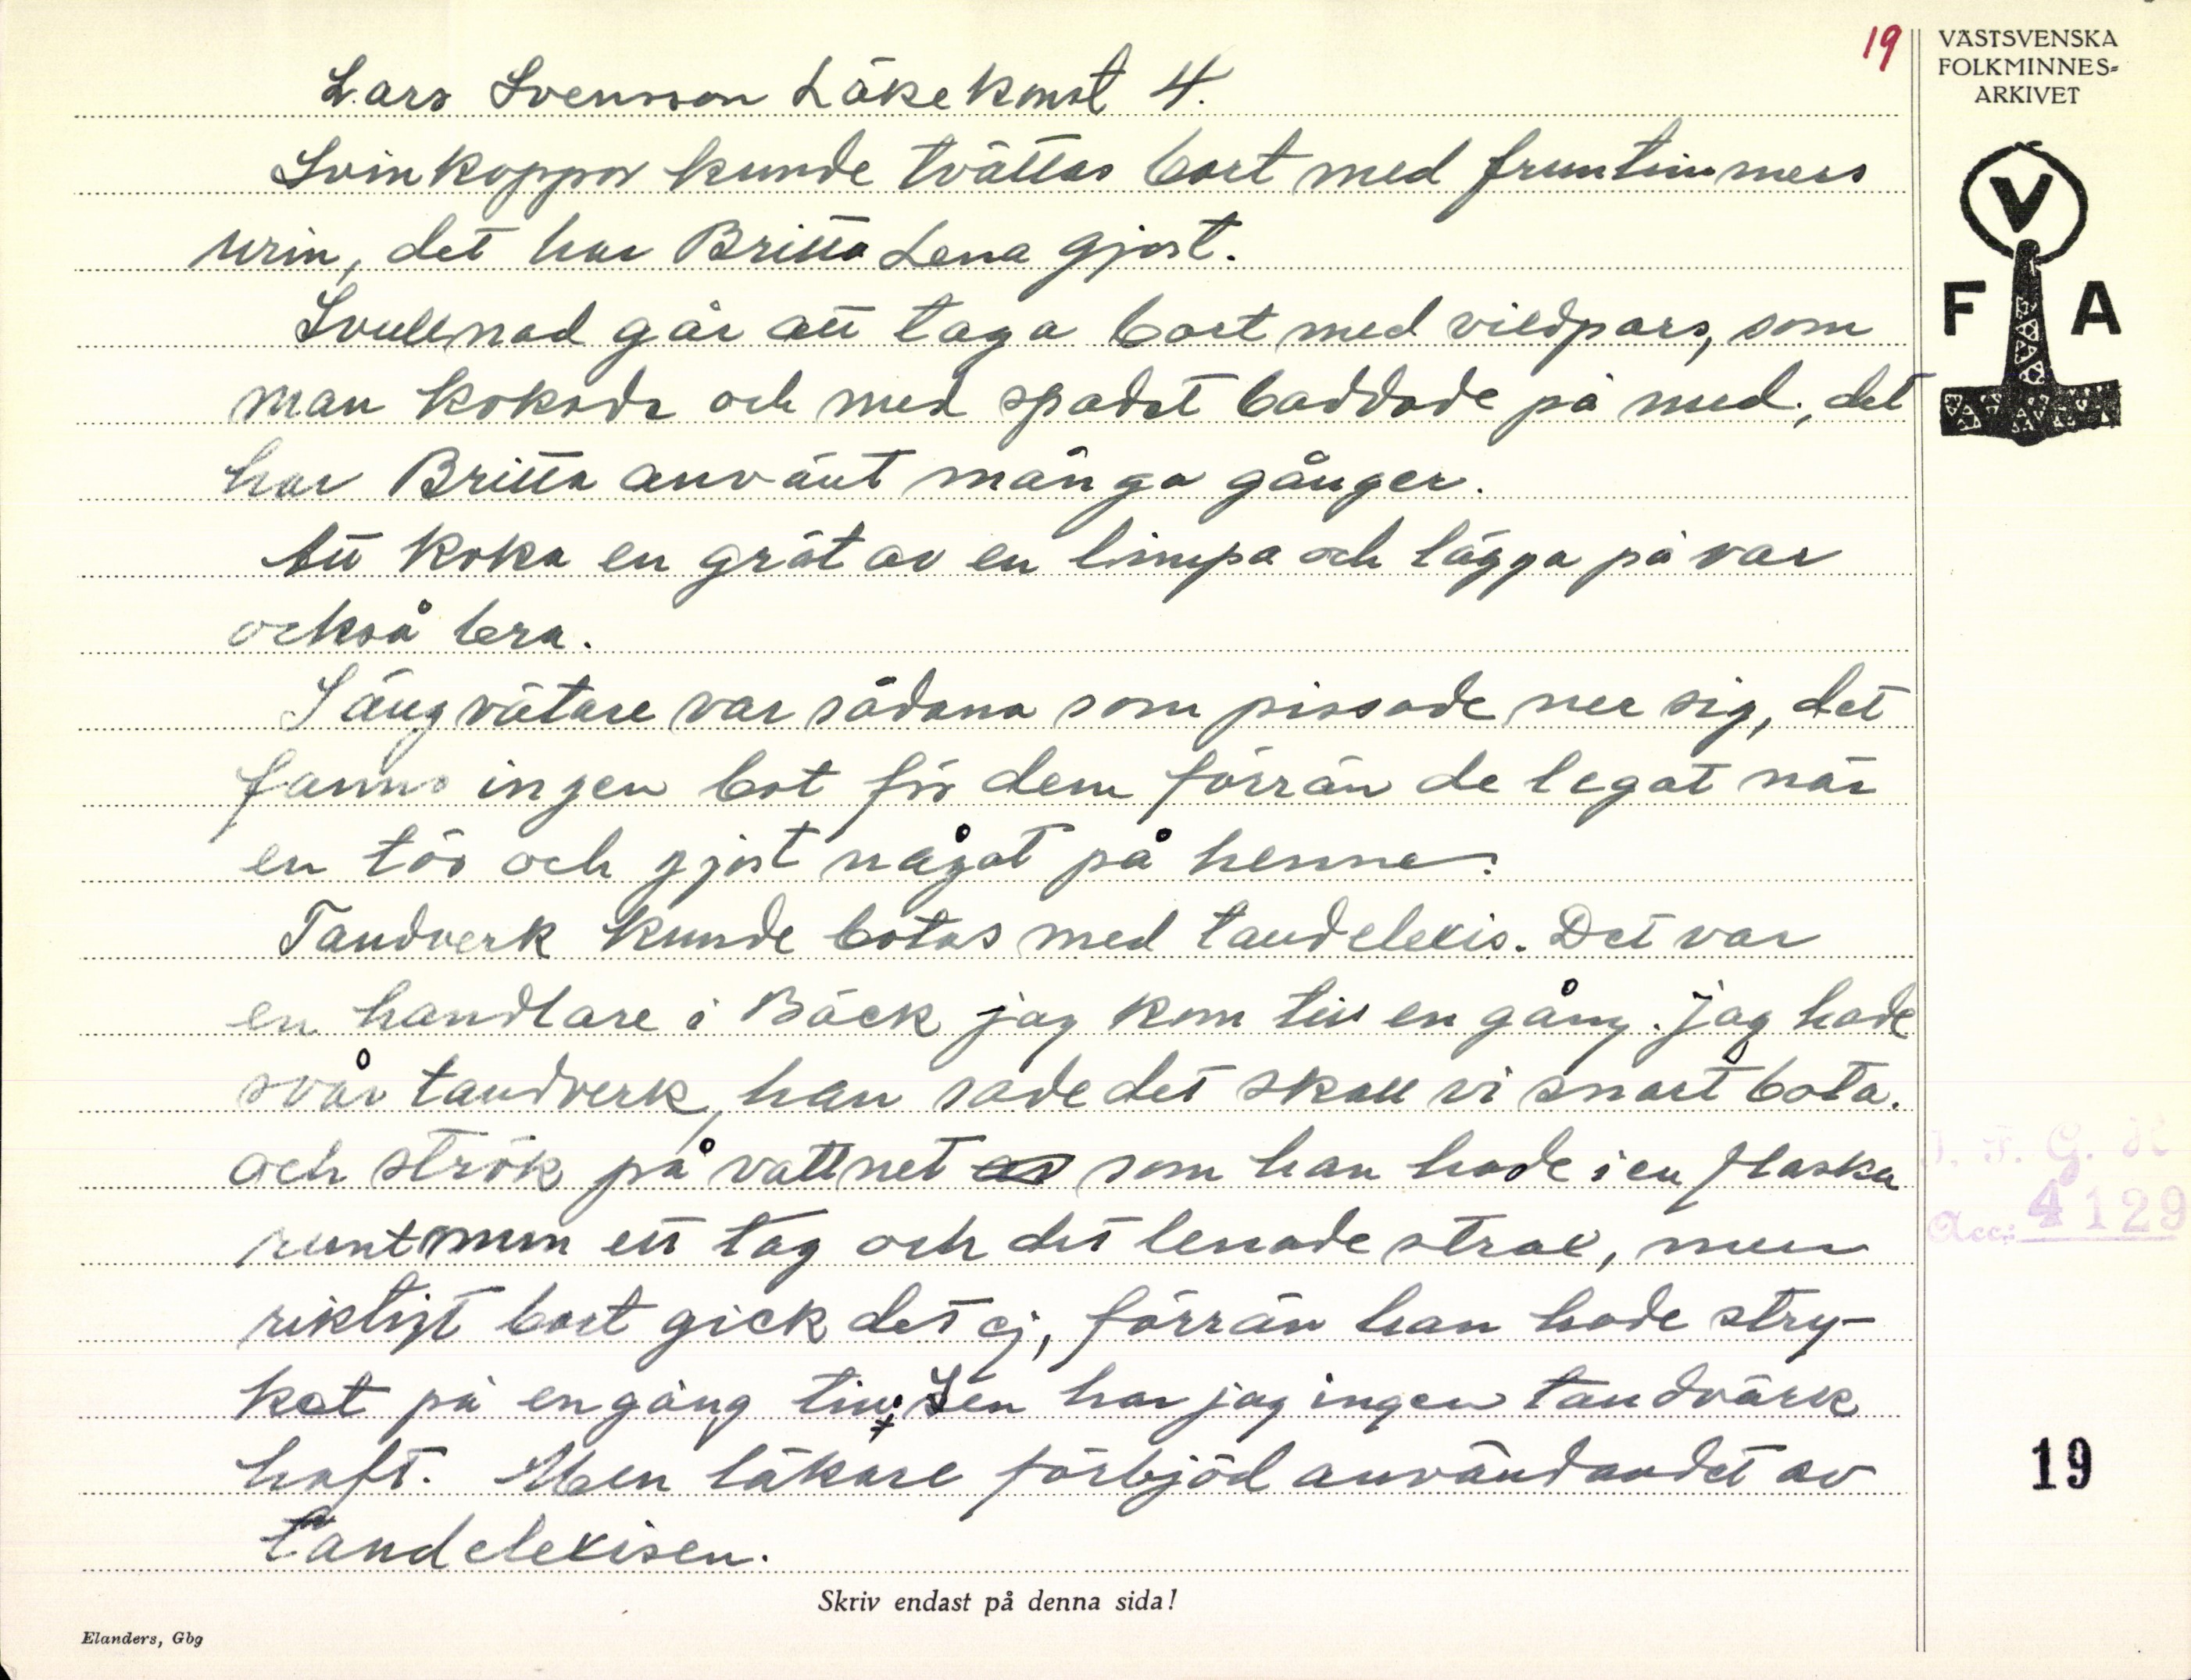 19
VÄSTSVENSKA
FOLKMINNES-
ARKIVET
V
F A
Lars Svensson Läkekonst 4.
Svinkoppor kunde tvättas bort med fruntimmers
urin, det har Britta Lena gjort.
Svullnad går att taga bort med vildpors, som
man kokade och med spadet baddade på med, det
har Britta använt många gånger.
Att koka en gröt av en limpa och lägga på var
också bra.
Sängvätare var sådana som pissade ner sig, det
fanns ingen bot för dem förrän de legat när
en tös och gjort något på henne.
Tandverk kunde botas med tandelexis. Det var
en handlare i Bäck jag kom till en gång. Jag hade
svår tandverk, han sade det skall vi snart bota.
och strök på vattnet som han hade i en flaska
runt om ett tag och det lenade strax, men
riktigt bort gick det ej, förrän han hade stry-
kat på en gång till. Sen har jag ingen tandvärk
haft. Men läkare förbjöd användandet av
tandelexisen.
I. F. G. H
Acc: 4129
19
Skriv endast på denna sida!
Elanders, Gbg